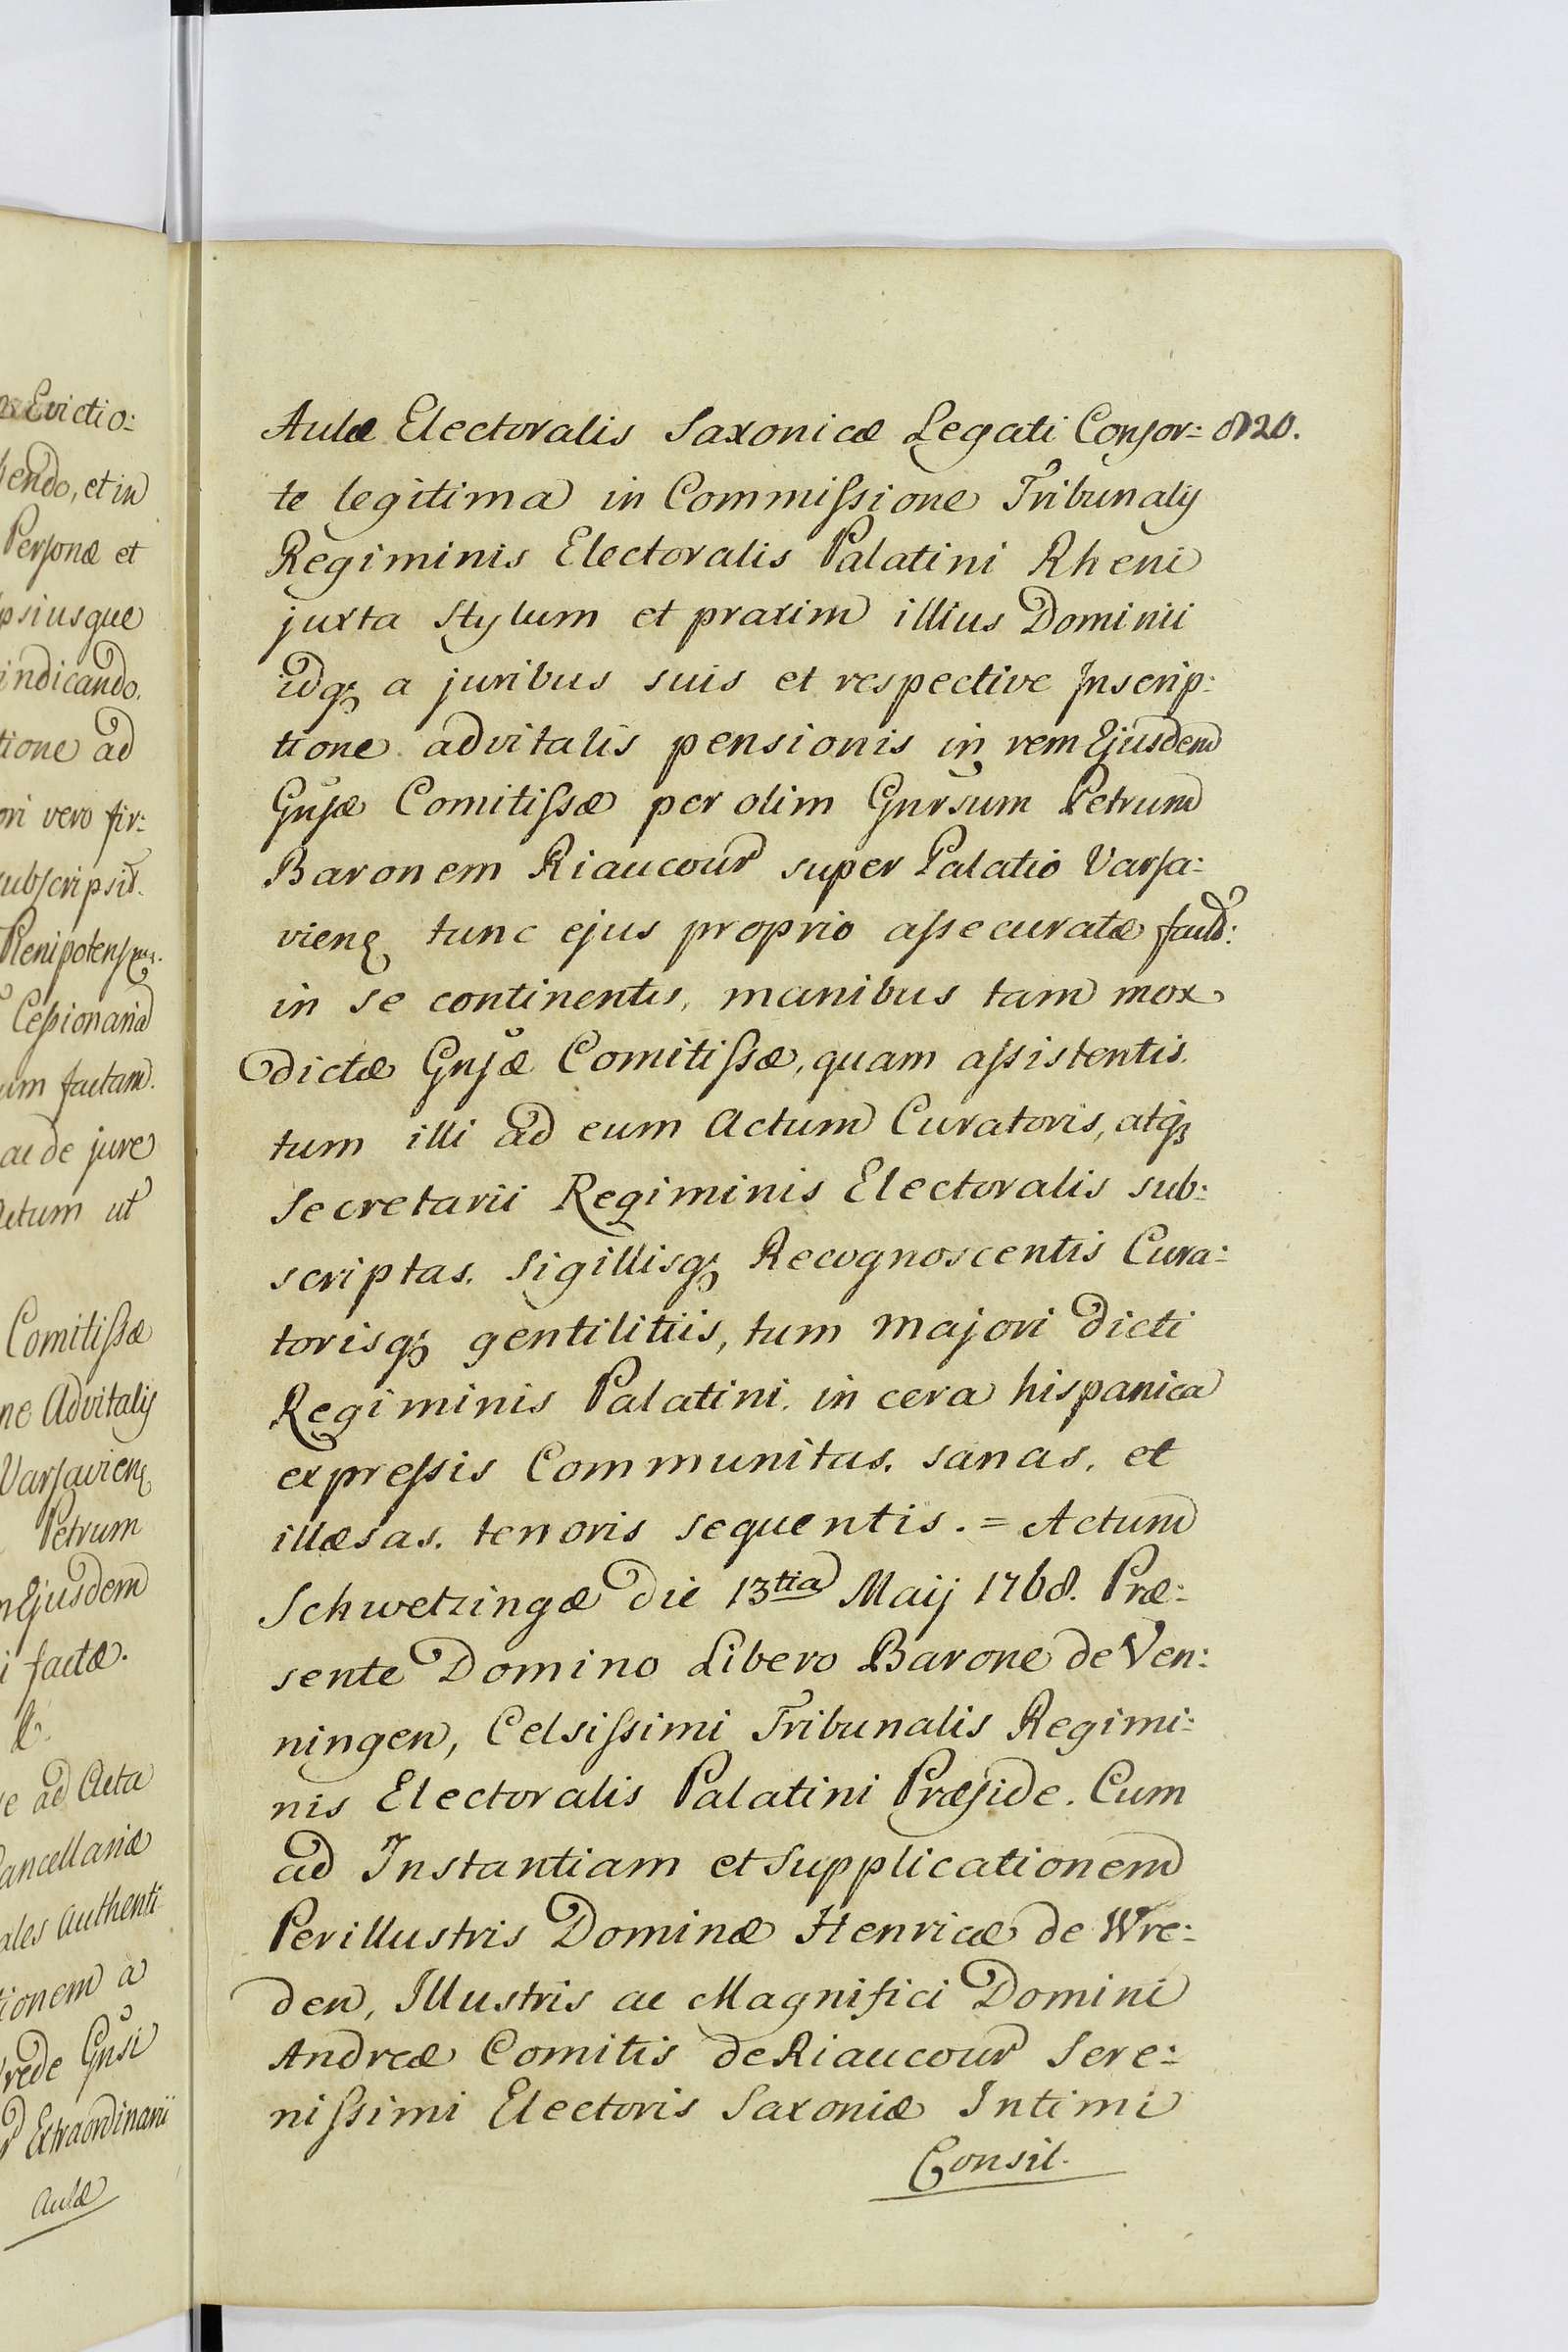 Aulæ Electoralis Saxonicæ Legati Consor: 820.
te legitima in Commissione Tribunalis
Regiminis Electoralis Palatini Rheni
juxta Stylum et praxim illius Dominii
idq; a juribus suis et respective Inscrip:
tione advitalis pensionis in rem Ejusdem
Gnsæ Comitissæ per olim Gnrsum Petrum
Baronem Riaucour super Palatio Varsa:
viens tunc ejus proprio assecuratæ
in se continentis, manibus tam mox
dictæ Gnsæ Comitissæ, quam assistentis.
tum illi ad eum Actum Curatoris, atq;
Secretarii Regiminis Electoralis sub:
scriptas. Sigillisq; Recognoscentis Cura:
torisq; gentilitiis, tum majori dicti
Regiminis Palatini. in cera hispanica
expressis Communitas. sanas. et
illæsas. tenoris sequentis. = Actum
Schwetzingæ die 13tia Maij 1768. Præ:
sente Domino Libero Barone de Ven:
ningen, Celsissimi Tribunalis Regimi:
nis Electoralis Palatini Præside. Cum
ad Instantiam et Supplicationem
Perillustris Dominæ Henricæ de Wre:
den, Illustris ac Magnifici Domini
Andreæ Comitis de Riaucour Sere:
nissimi Electoris Saxoniæ Intimi
Consil.
Evictio:
et in
Personæ et
indicando.
ad
vero fir:
subscripsit.
Cessionaria
factam.
ac de jure
ut
Comitissæ
Advitalis
Varsaviens
Petrum
Ejusdem
factæ.
ad Acta
Cancellariæ
Authenti
a
Gnsi
Extraordinarii
Aulæ